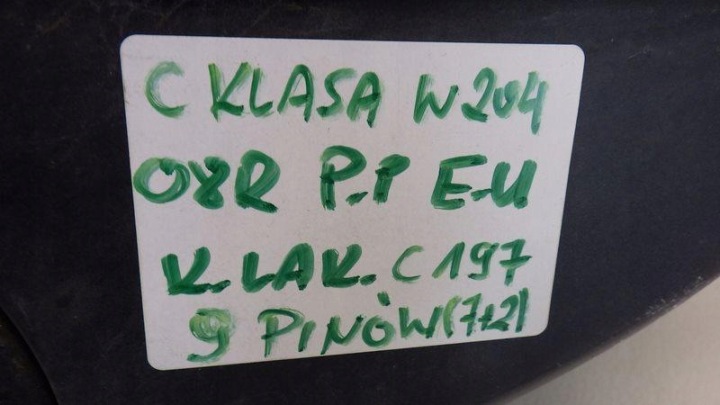 C KLASA W204
08R P.P E.U
K.LAK. C197
9 PINÓW(7+2)